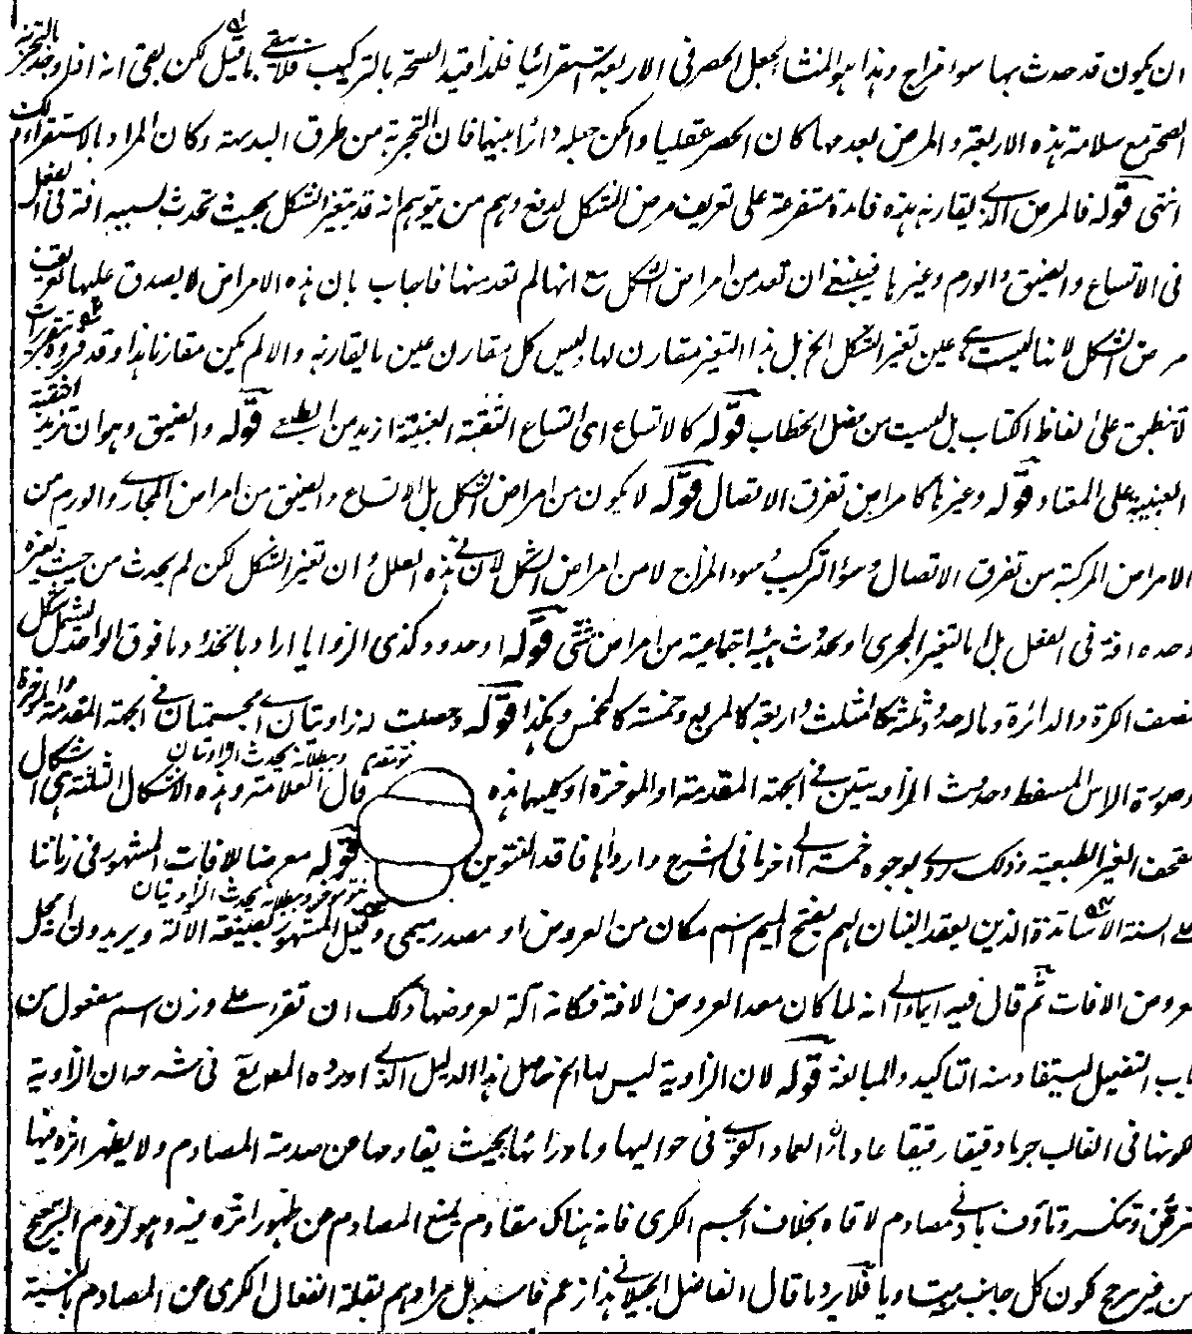 ان يكون قد حدث بها سوء مزاج وهذا هو المنشأ لجعل الحصر فى الاربعة استقرائيا فلذا قيد الصحة بالتركيب فلا يبقى ما قيل لكن بقى انه اذا وجد بالتجربة
الصحة مع سلامة هذه الاربعة والمرض بعدمها كان الحصر عقليا وامكن جعله دائرا بينها فان التجربة من طرق البديهة وكان المراد بالاستقراء ذلك
انتهى قوله فالمرض الذى يقارنه هذه فائدة متفرعة على تعريف مرض الشكل لدفع وهم من يتوهم انه قد يتغير الشكل بحيث تحدث بسببه افة فى الفعل
فى الاتساع والضيق والورم وغيرها فينبغى ان تعد من امراض الشكل مع انها لم تعد منها فاجاب بان هذه الامراض لا يصدق عليها تعريف
مرض الشكل لانها ليست هى عين تغير الشكل الخ بل هذا التغير مقارن لها وليس كل مقارن عين ما يقارنه والا لم يكن مقارنا هذا وقد
لا تنطبق على الفاظ الكتاب بل ليست من فصل الخطاب قوله كالاتساع اى اتساع الثقبة العنبية ازيد من الطبعى قوله والضيق وهو ان تزيد الثقبة
العنبية على المعتاد قوله وغيرها كامراض تفرق الاتصال قوله لا يكون من امراض الشكل بل الاتساع والضيق من امراض المجارى والورم من
الامراض المركبة من تفرق الاتصال وسوء التركيب وسوء المزاج لا من امراض الشكل لان فى هذه العلل وان تغير الشكل لكن لم يحدث من حيث تغيره
وحده افة فى الفعل بل اما لتغير المجرى او لحدوث هيئة اجتماعية من امراض شتى قوله او حدود كذى الزوايا اراد بالحدود ما فوق الواحد ليشمل شكل
نصف الكرة والدائرة وماله حدود ثلثة كالمثلث واربعة كالمربع وخمسة كالمخمس وهكذا قوله وحصلت له زاويتان اى مجسمتان فى الجهة المقدمة والمؤخرة
وصورة الراس المسفط وحدوث الزاويتين فى الجهة المقدمة او المؤخرة او كليهما هذه
نتو مقدم وببطلانه يحدث الزاويتان
قال العلامة وهذه الاشكال الثلثة هى اشكال
القحف الغير الطبعية وذلك ردى لوجوه خمسة الى اخر ما فى الشرح واردأها فاقد النتوين
نتو مؤخر وببطلانه يحدث الزاويتان
قوله معرضا للافات المشهور فى زماننا
على السنة الاساتذة الذين يعقد البنان لهم بفتح الميم اسم مكان من العروض او مصدر ميمى وقيل المشهور بصيغة الالة ويريدون المحل
عروض الافات ثم قال فيه ايماء الى انه لما كان معد العروض الافة فكانه الة لعروضها ولك ان تقرء على وزن اسم مفعول من
باب التفعيل ليستفاد منه التاكيد والمبالغة قوله لان الزاوية ليس لها الخ حاصل هذا الدليل الذى اورده المص فى شرحه ان الزاوية
لكونها فى الغالب جرما دقيقا رقيقا عادما للعماد القوى فى حواليها وما ورائها بحيث يقاومها عن صدمة المصادم ولا يظهر اثره فيها
تترضض وتنكسر وتأوف بادنى مصادم لاقاه بخلاف الجسم الكرى فانه هناك مقاوم يمنع المصادم عن ظهور اثره فيه وهو لزوم الترجيح
من غير مرجح كون كل جانب متساويا فلا يرد ما قال الفاضل الجيلانى هذا زعم فاسد بل مرادهم بقلة انفعال الكرى عن المصادم بالنسبة